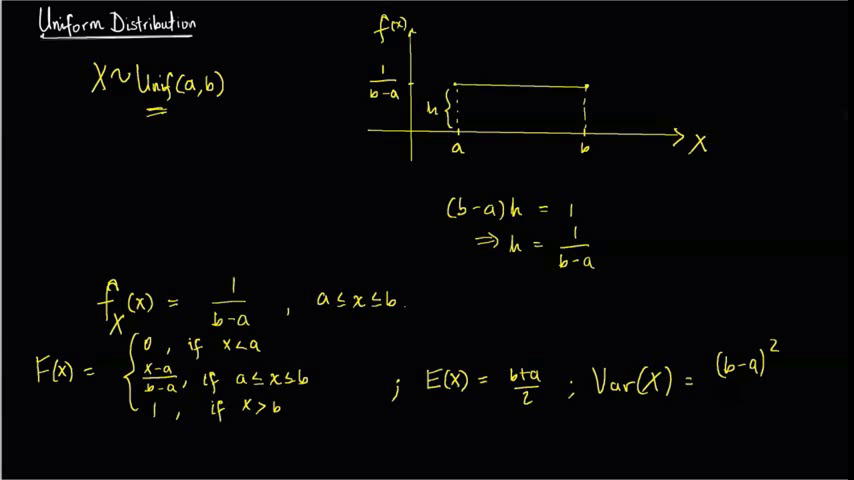 Uniform Distribution
X ~ Unif(a,b)
f(x)
1/(b-a)
h
a
b
X
(b-a)h = 1
⇒ h = 1/(b-a)
f_X(x) = 1/(b-a) , a ≤ x ≤ b.
F(x) = { 0 , if x<a
(x-a)/(b-a), if a ≤ x ≤ b
1 , if x>b
; E(X) = (b+a)/2 ; Var(X) = (b-a)^2